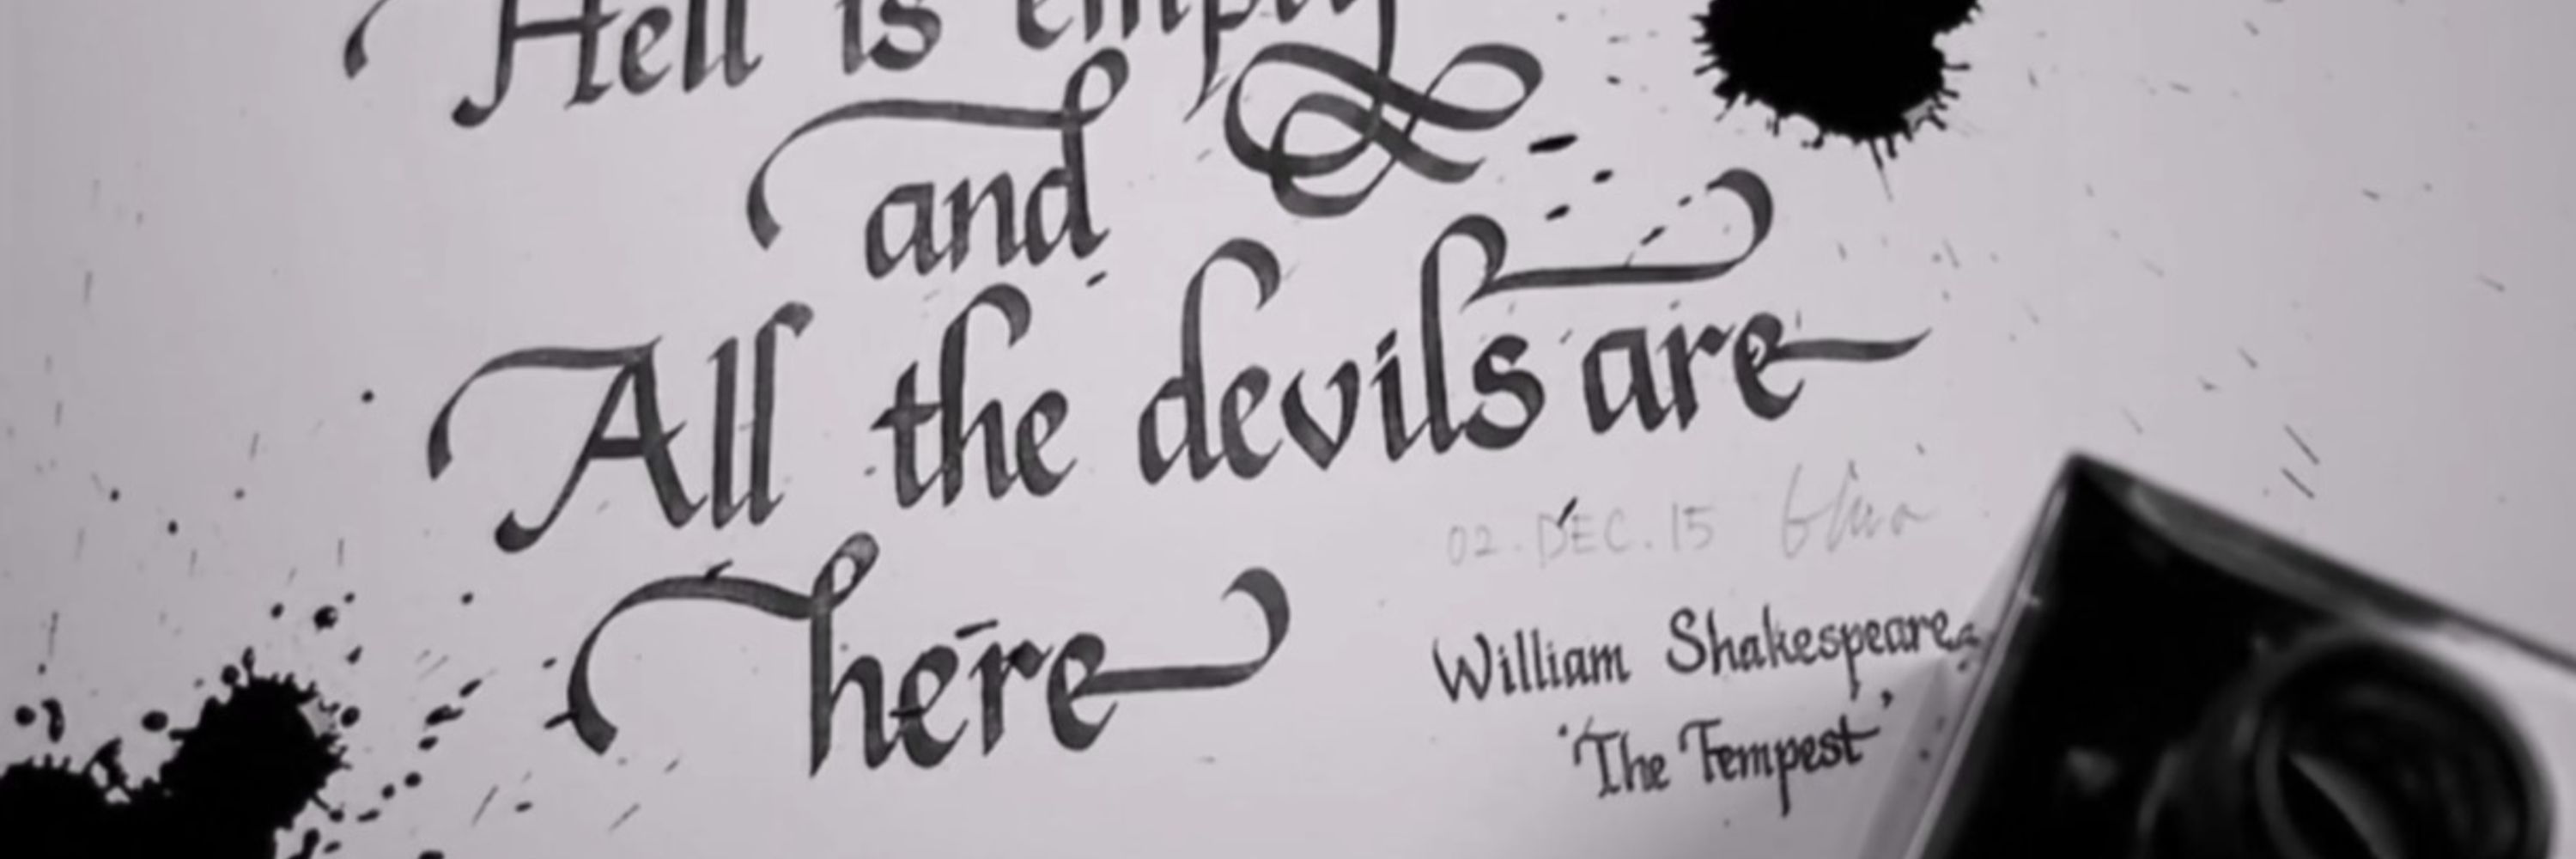 Hell is empty
and
All the devils are
here
02.DEC.15
William Shakespeare
'The Tempest'